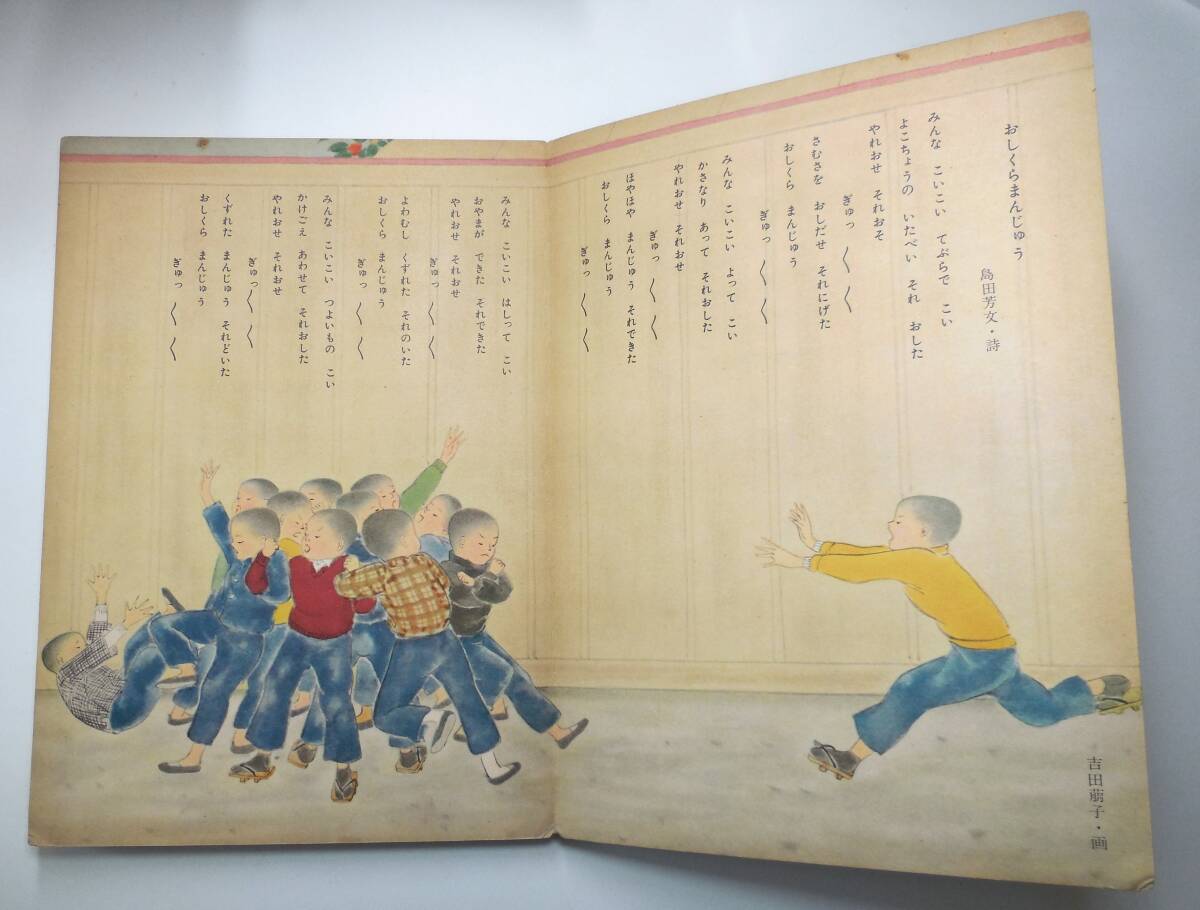 おしくらまんじゅう
島田芳文・詩
みんな こいこい てぶらで こい
よこちょうの いたべい それ おした
やれおせ それおそ
ぎゅっ 〱 〱
さむさを おしだせ それにげた
おしくら まんじゅう
ぎゅっ 〱 〱
みんな こいこい よって こい
かさなり あって それおした
やれおせ それおせ
ぎゅっ 〱 〱
ほやほや まんじゅう それできた
おしくら まんじゅう
ぎゅっ 〱 〱
みんな こいこい はしって こい
おやまが できた それできた
やれおせ それおせ
ぎゅっ 〱 〱
よわむし くずれた それのいた
おしくら まんじゅう
ぎゅっ 〱 〱
みんな こいこい つよいもの こい
かけごえ あわせて それおした
やれおせ それおせ
ぎゅっ 〱 〱
くずれた まんじゅう それどいた
おしくら まんじゅう
ぎゅっ 〱 〱
吉田萠子・画